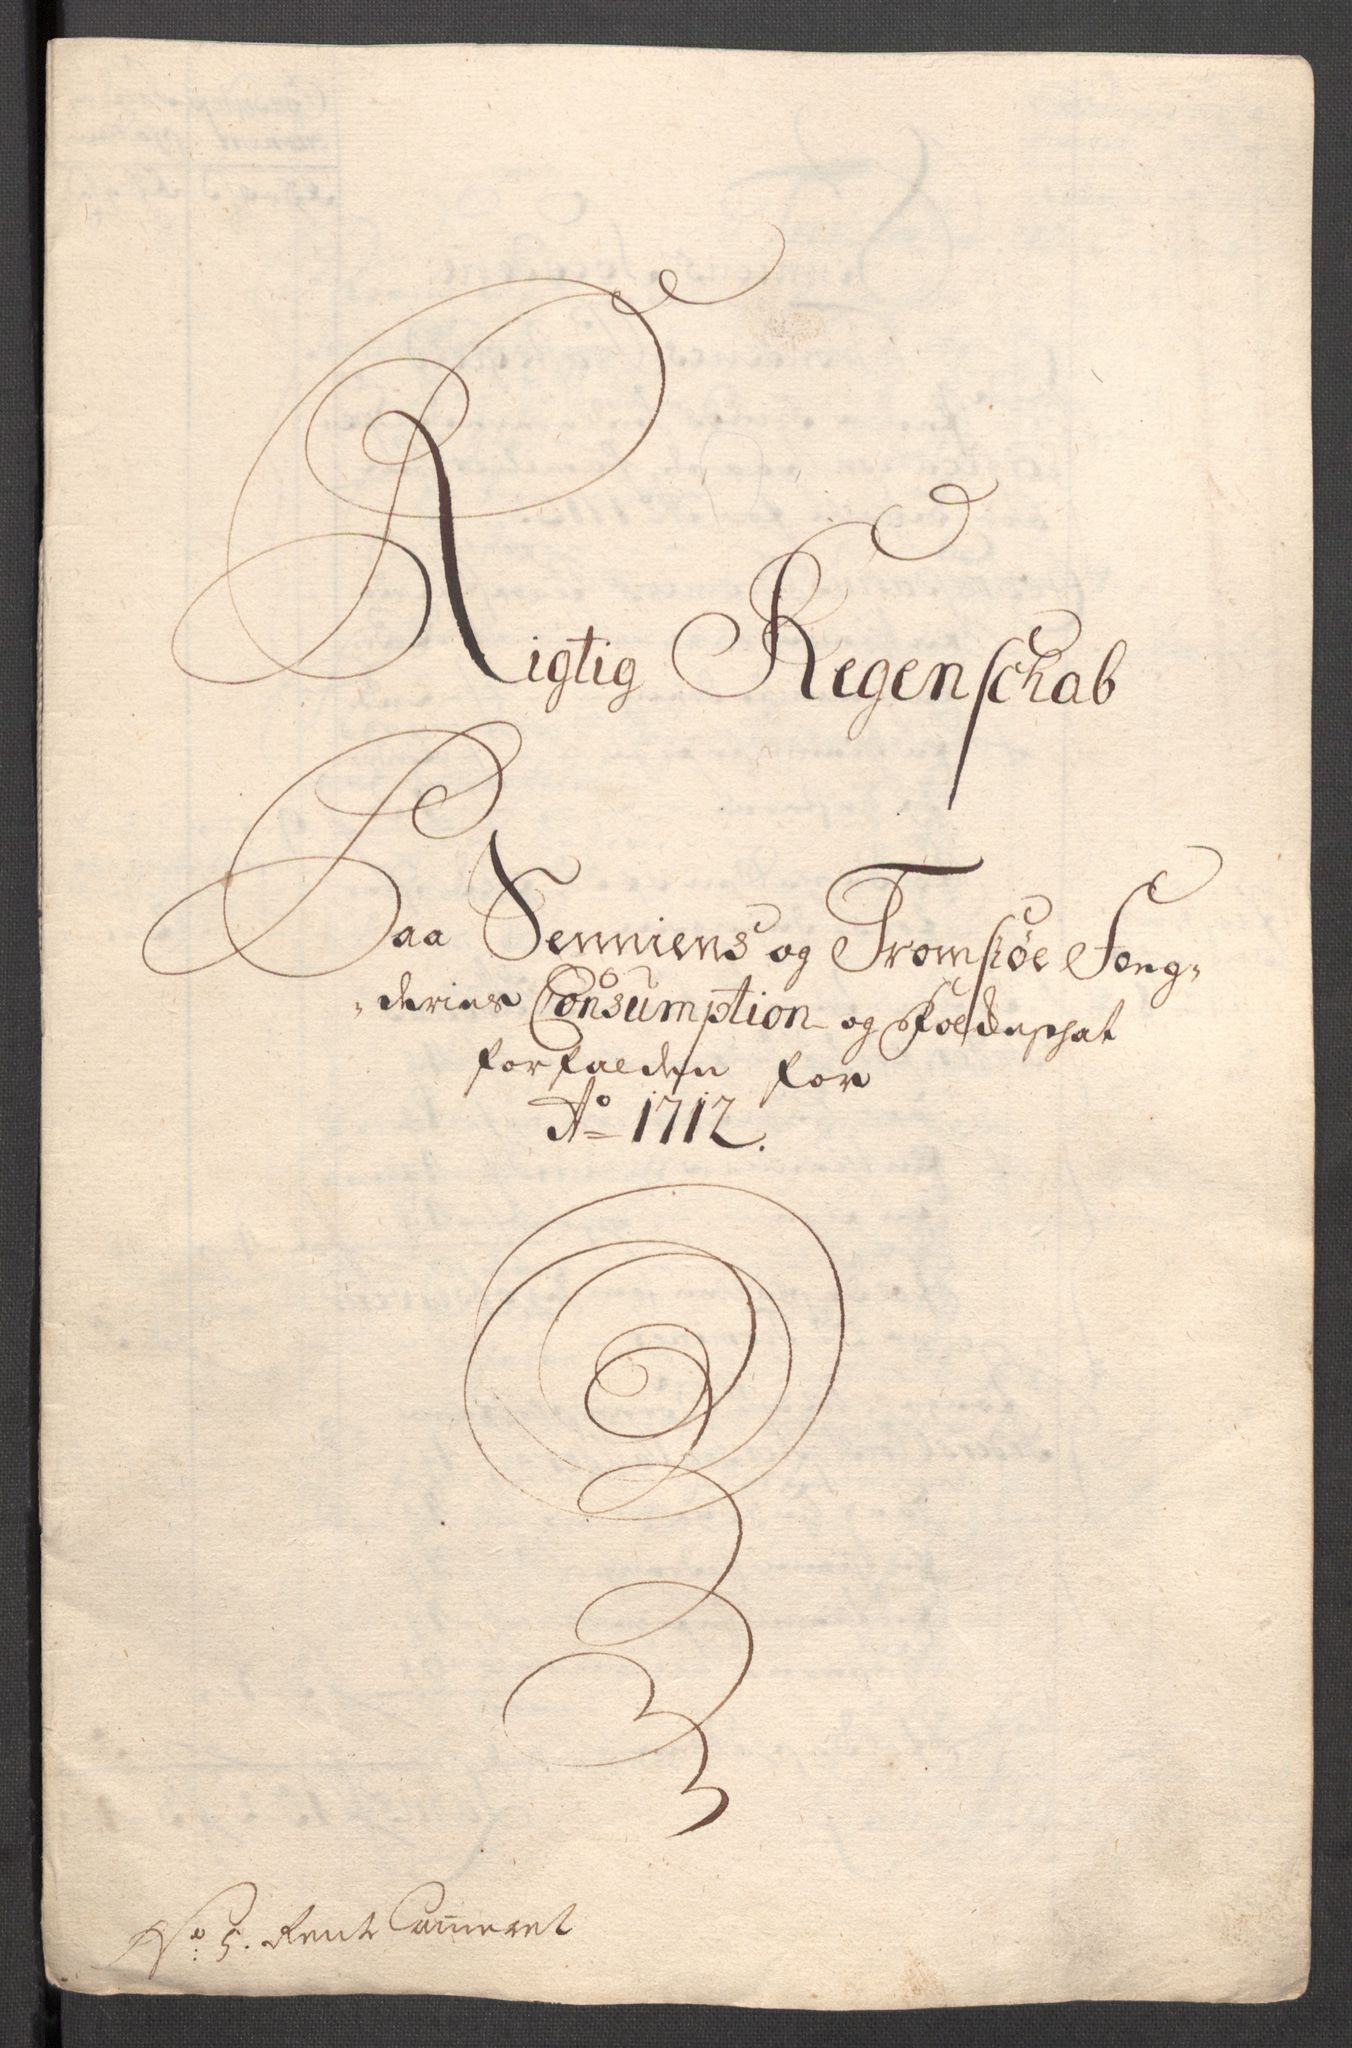 Rigtig Regenschab
Paa Senniens og Tromsøe Fong-
-deries Consumption og Folckeschat
forfalden for
Ao 1712.
No 5. Rente Cammeret